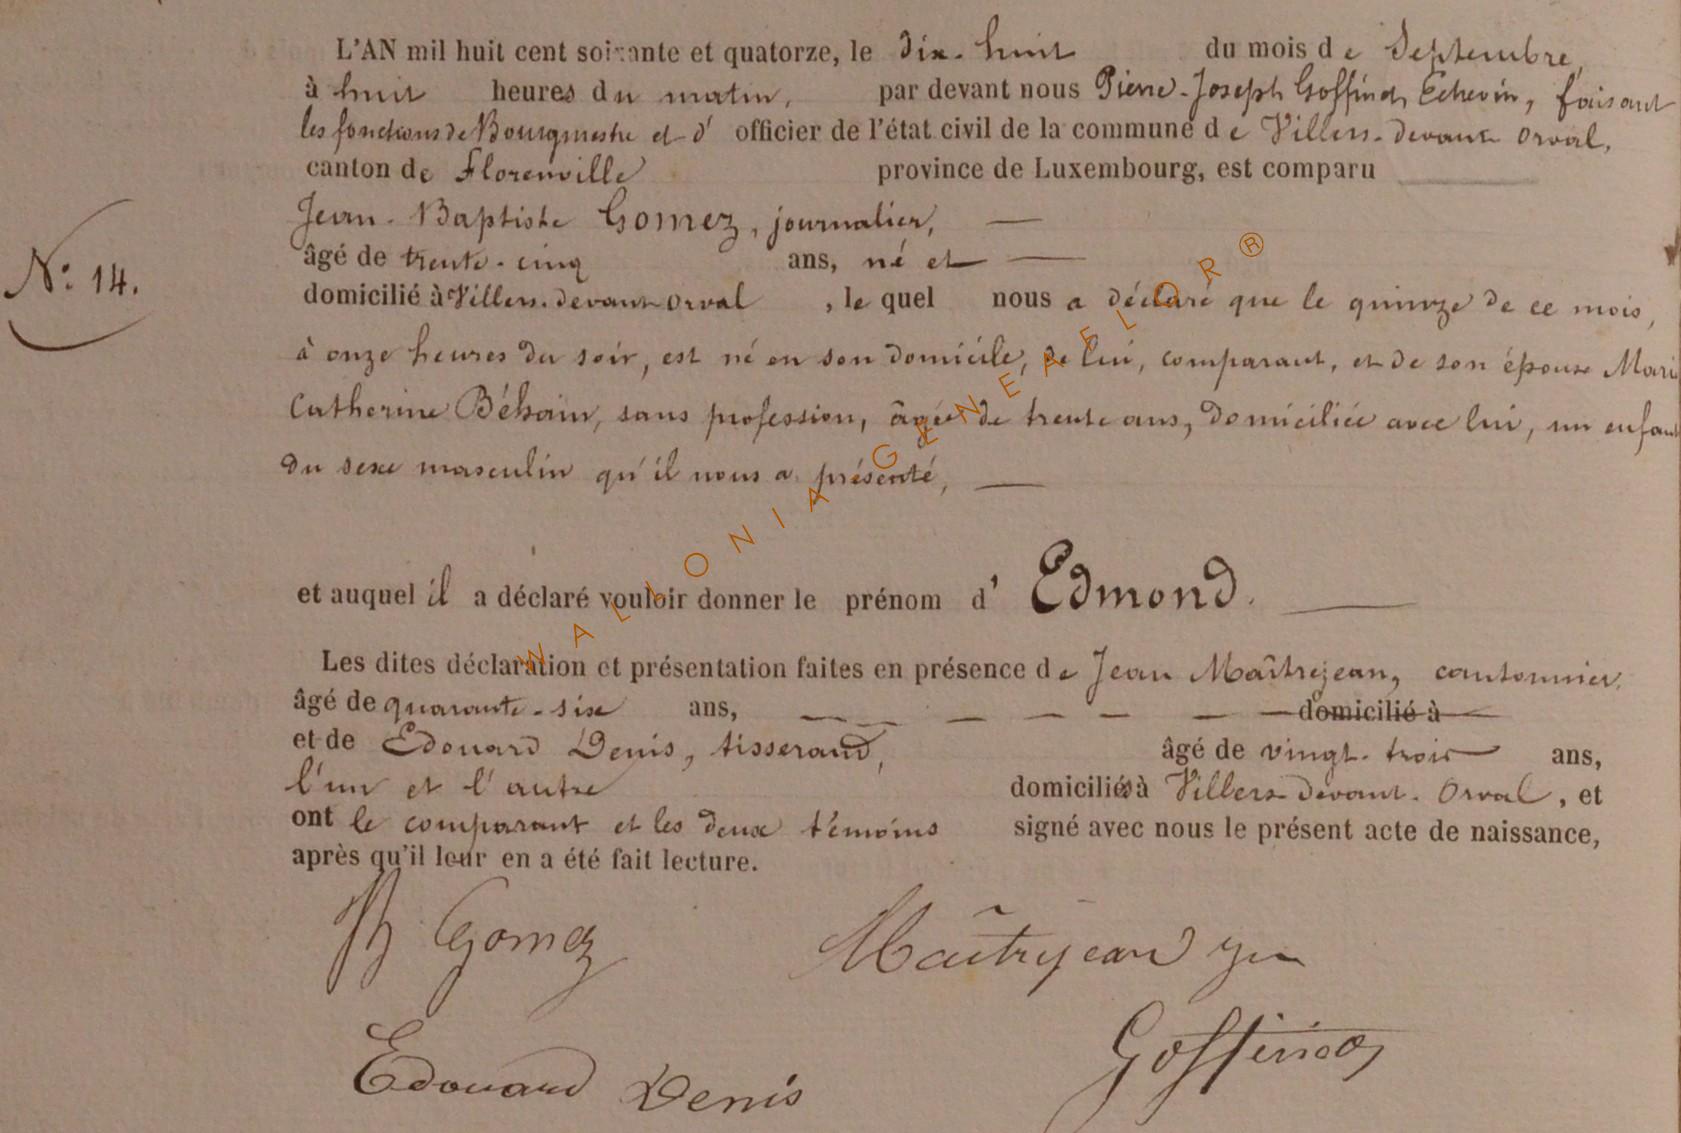 L'AN mil huit cent soixante et quatorze, le dix-huit du mois de Septembre,
à huit heures du matin, par devant nous Pierre-Joseph Goffinet, Echevin, faisant
les fonctions de Bourgmestre et d' officier de l'état civil de la commune de Villers-devant-Orval,
canton de Florenville province de Luxembourg, est comparu
Jean-Baptiste Gomez, journalier,
âgé de trente-cinq ans, né et
domicilié à Villers-devant-Orval, le quel nous a déclaré que le quinze de ce mois,
N° 14.
à onze heures du soir, est né en son domicile, de lui, comparant, et de son épouse Marie
Catherine sans profession, âgée de trente ans, domiciliée avec lui, un enfant
du sexe masculin qu'il nous a présenté,
et auquel il a déclaré vouloir donner le prénom d' Edmond.
Les dites déclaration et présentation faites en présence de Jean Maîtrejean, cantonnier,
âgé de quarante-six ans, domicilié à
et de Edouard Denis, tisserand, âgé de vingt-trois ans,
l'un et l'autre domiciliés à Villers-devant-Orval, et
ont le comparant et les deux témoins signé avec nous le présent acte de naissance,
après qu'il leur en a été fait lecture.
Gomez Maîtrejean
Edouard Denis Goffinet
WALLONIA GENEAFLOR ®